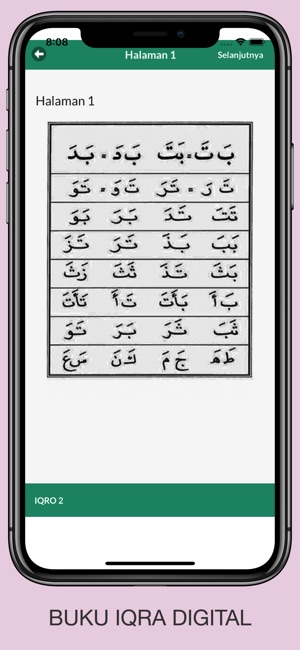 8:08
Halaman 1
Selanjutnya
Halaman 1
بَ تَ = بَتَ بَ دَ = بَدَ
تَ رَ = تَرَ تَ وَ = تَوَ
تَتَ تَدَ بَرَ بَوَ
بَبَ بَذَ تَرَ تَزَ
بَثَ تَذَ ثَثَ زَثَ
بَ أَ بَأَتَ تَ أَ تَأَتَ
ثَبَ ثَرَ بَرَ تَوَ
طَ هَ جَ مَ كَ نَ سَ عَ
IQRO 2
BUKU IQRA DIGITAL